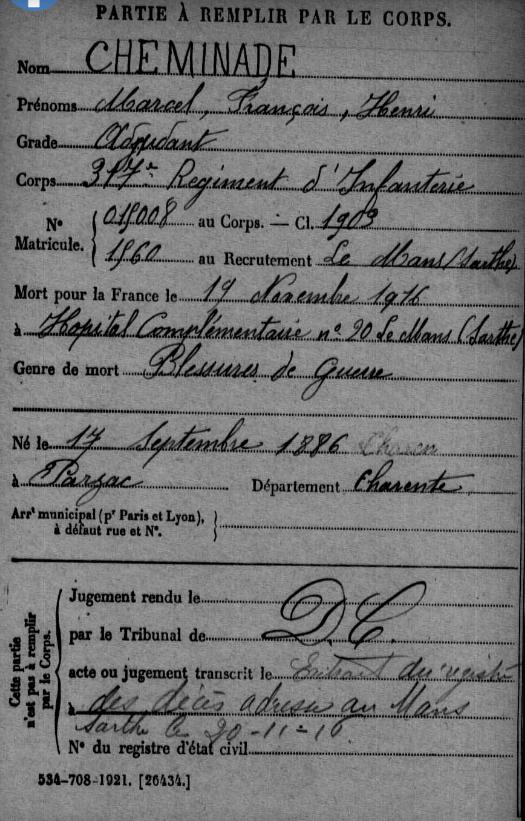 PARTIE À REMPLIR PAR LE CORPS.
Nom CHEMINADE
Prénoms Marcel, François, Henri
Grade Adjudant
Corps 317e Regiment d'Infanterie
N° Matricule. { 015008 au Corps. — Cl. 1909
1560 au Recrutement Le Mans (Sarthe)
Mort pour la France le 19 Novembre 1916
à Hopital Complémentaire n° 20 Le Mans (Sarthe)
Genre de mort Blessures de Guerre
Né le 17 Septembre 1886
à Parzac Département Charente
Arrt municipal (pr Paris et Lyon), à défaut rue et N°. }
Cette partie n'est pas à remplir par le Corps.
Jugement rendu le
par le Tribunal de D.C.
acte ou jugement transcrit le Extrait du registre
à des décès adressé au Mans
Sarthe le 20-11-16
N° du registre d'état civil
534-708-1921. [26434.]